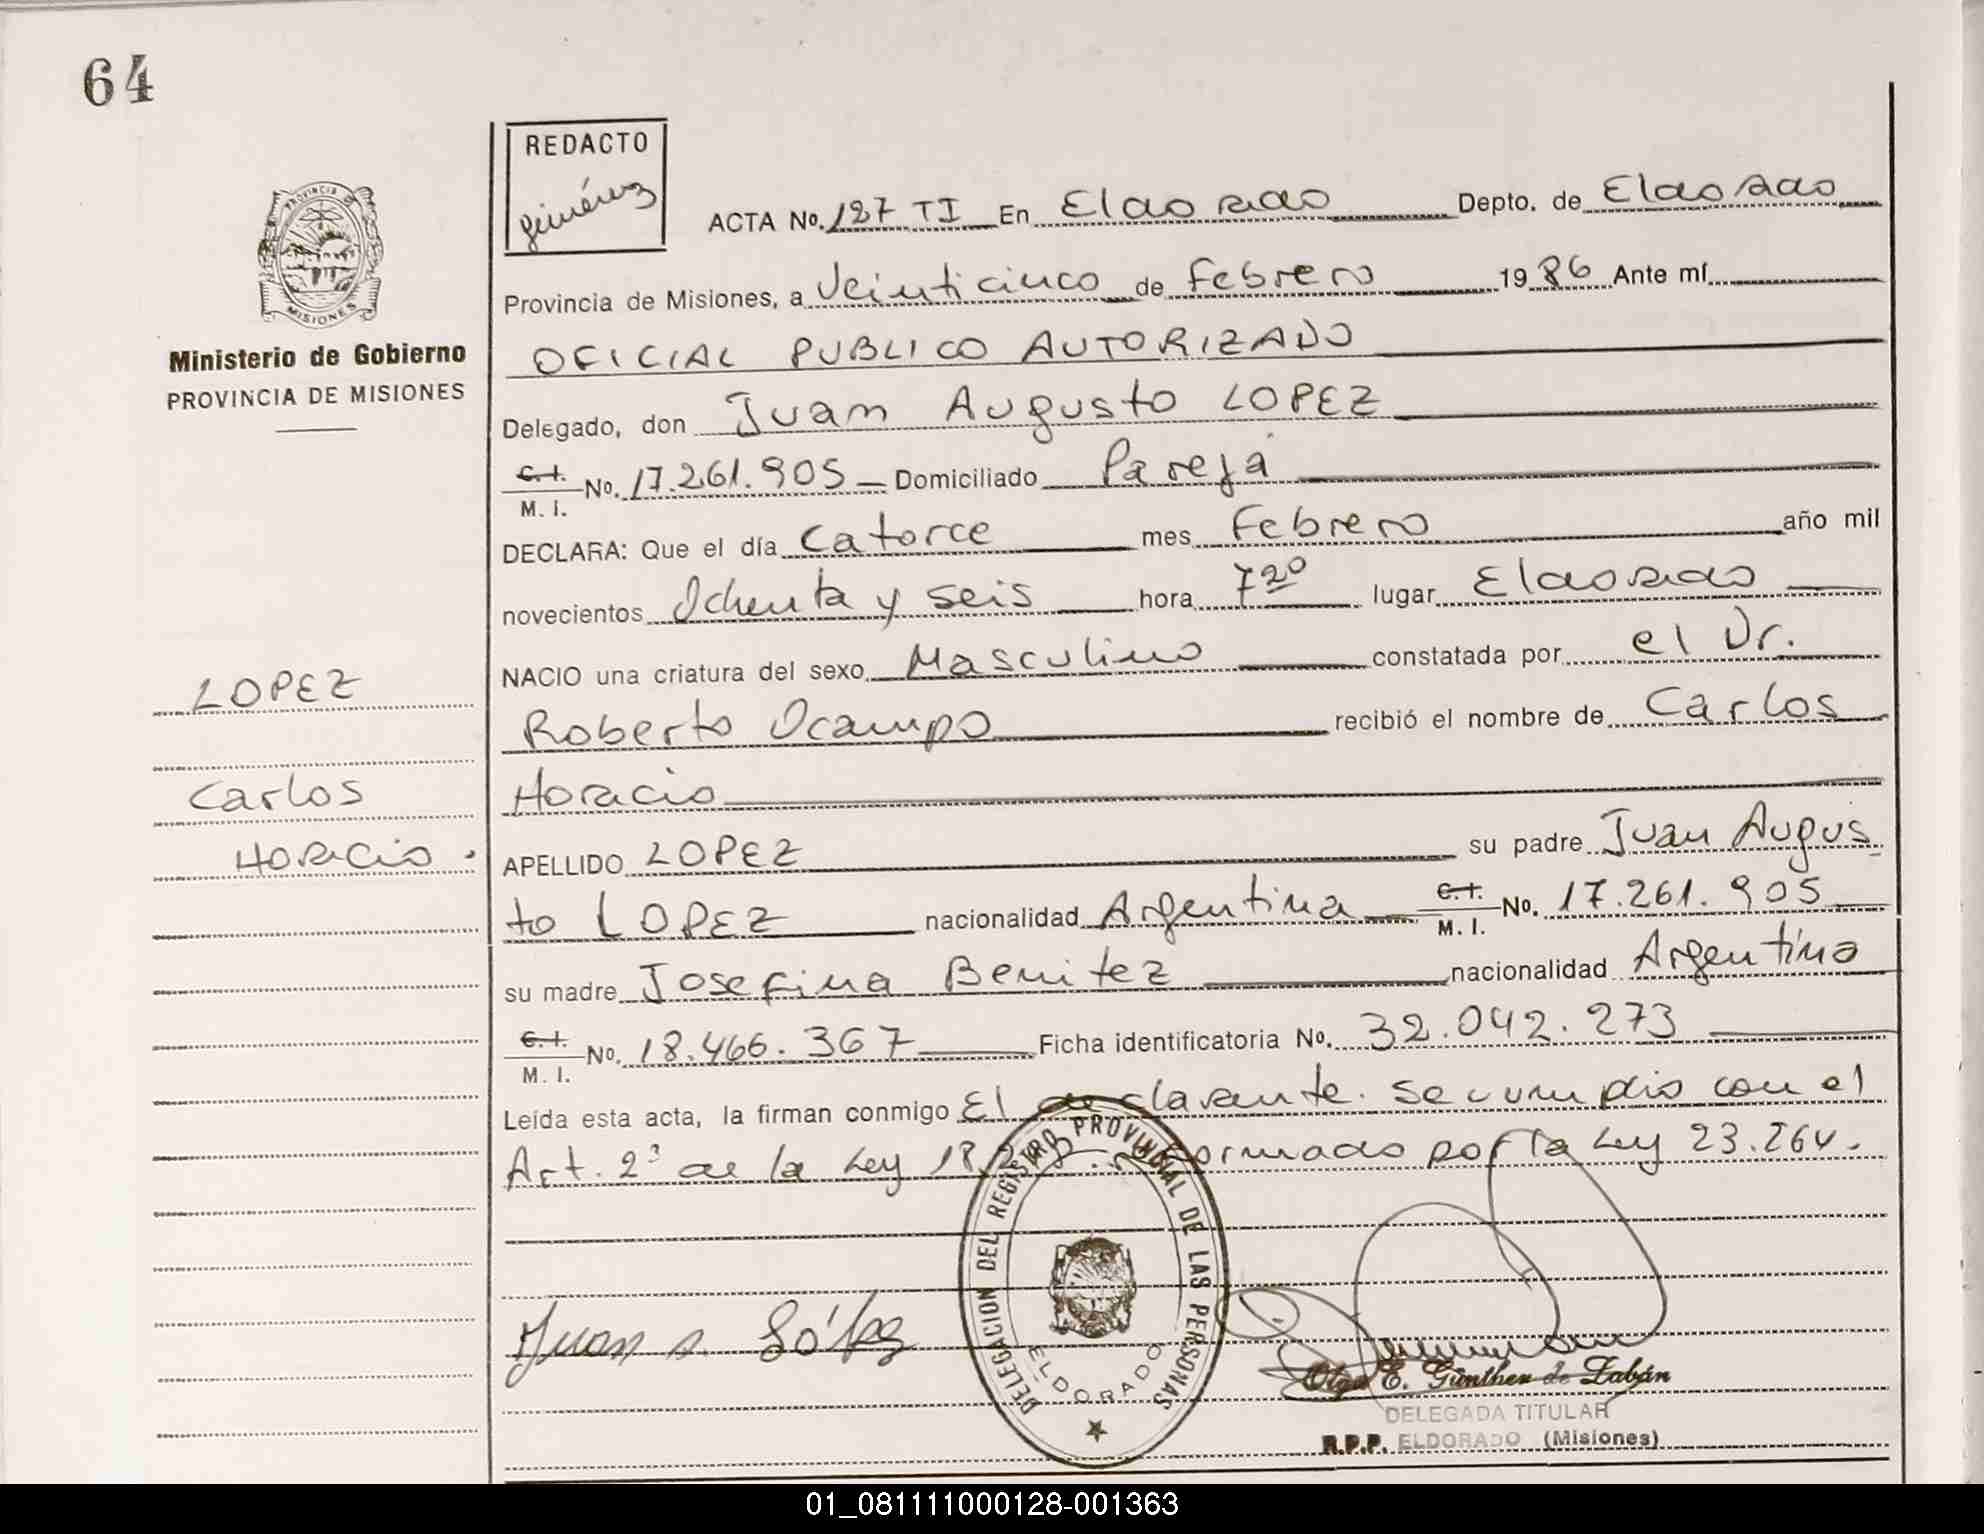 64
REDACTO
giménez
ACTA No. 127 TI En Eldorado Depto. de Eldorado
Provincia de Misiones, a Veinticinco de Febrero 1986 Ante mí
OFICIAL PUBLICO AUTORIZADO
Delegado, don Juan Augusto LOPEZ
C.I.
M. I. No. 17.261.905 Domiciliado Pareja
DECLARA: Que el día Catorce mes Febrero año mil
novecientos Ochenta y seis hora 7 20 lugar Eldorado
NACIO una criatura del sexo Masculino constatada por el Dr.
Roberto Ocampo recibió el nombre de Carlos
Horacio
APELLIDO LOPEZ su padre Juan Augus
to LOPEZ nacionalidad Argentina C.I. M. I. No. 17.261.905
su madre Josefina Benitez nacionalidad Argentina
C.I.
M. I. No. 18.466.367 Ficha identificatoria No. 32.042.273
Leída esta acta, la firman conmigo El declarante. se cumplio con el
Art. 2º de la Ley formado por la Ley 23.264.
PROVINCIA
MISIONES
Ministerio de Gobierno
PROVINCIA DE MISIONES
LOPEZ
Carlos
Horacio.
DELEGACION DEL REGISTRO PROVINCIAL DE LAS PERSONAS
ELDORADO
Juan A. López
Olga E. Günther de Zabán
DELEGADA TITULAR
R.P.P. ELDORADO (Misiones)
01_081111000128-001363